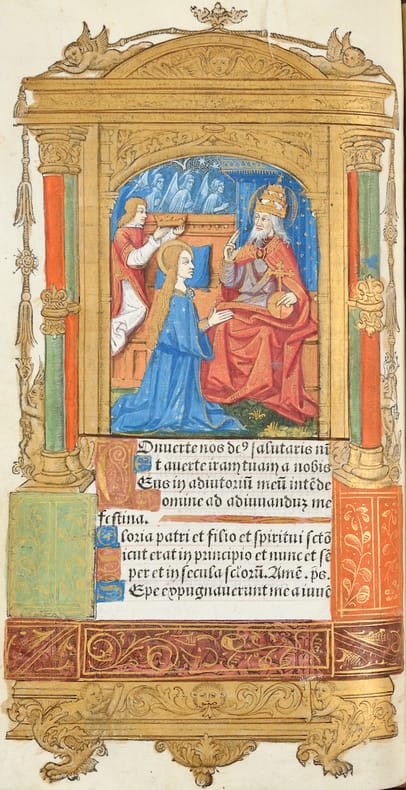 Onuerte nos de⁹ salutaris nr̄
t auerte iram tuam a nobis
Eus in adiutoriū meū intēde
omine ad adiuuanduz me
festina.
loria patri et filio et spiritui sctō
icut erat in principio et nunc et sē
per et in secula sclorū. Amē. ps.
Epe expugnauerunt me a iuuē